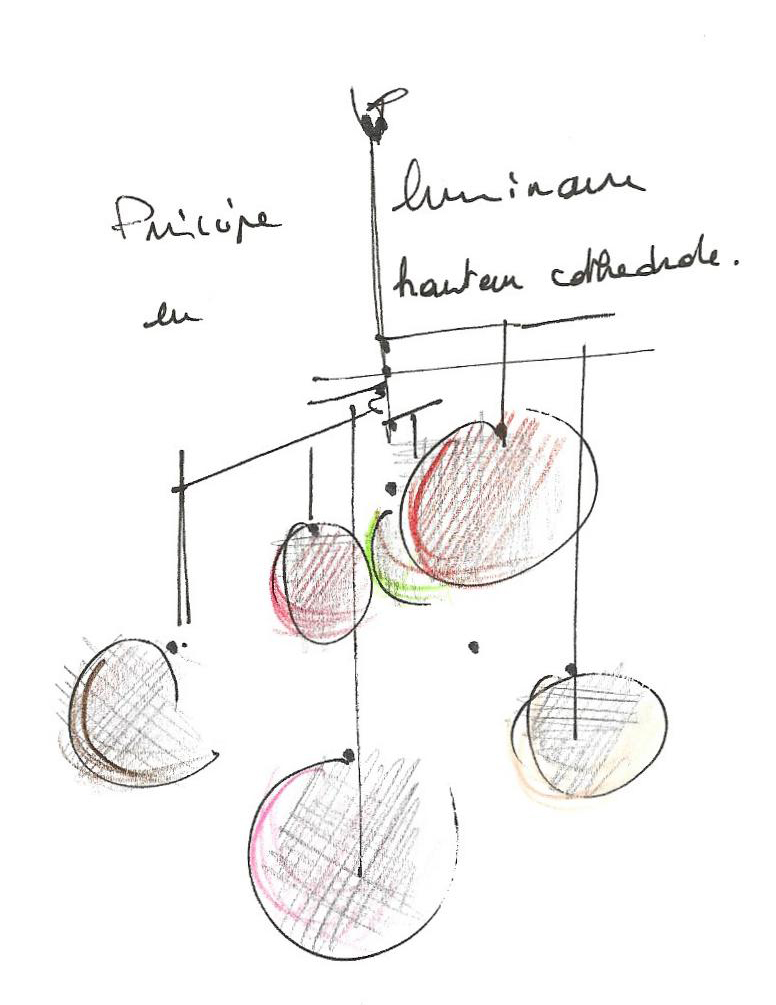 Principe luminaire
en hauteur cathedrale.